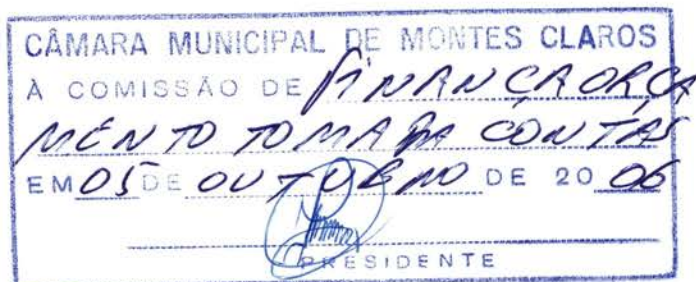 CÂMARA MUNICIPAL DE MONTES CLAROS
À COMISSÃO DE FINANÇA ORÇA
MENTO TOMADA CONTAS
EM 05 DE OUTUBRO DE 2006
PRESIDENTE